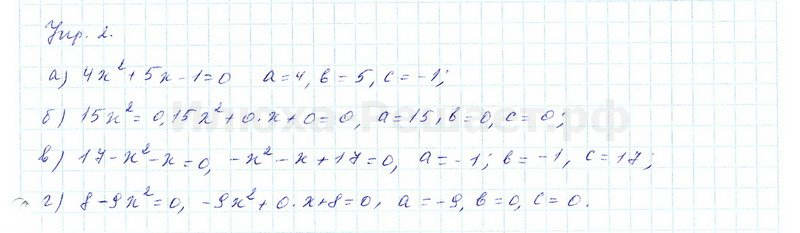 Упр. 2.
а) 4x² + 5x - 1 = 0 a = 4, b = 5, c = -1;
б) 15x² = 0, 15x² + 0·x + 0 = 0, a = 15, b = 0, c = 0;
в) 17 - x² - x = 0, -x² - x + 17 = 0, a = -1; b = -1, c = 17;
г) 8 - 9x² = 0, -9x² + 0·x + 8 = 0, a = -9, b = 0, c = 0.